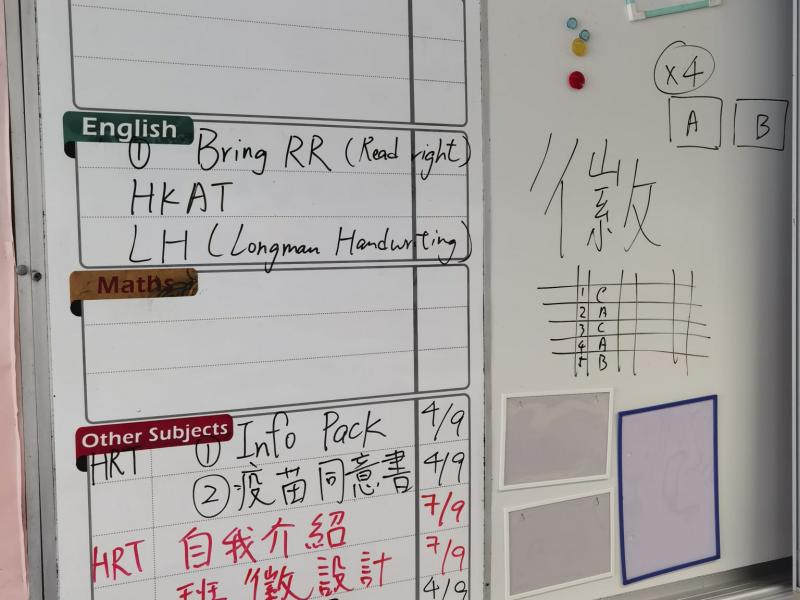 English
① Bring RR (Read right)
HKAT
LH (Longman Handwriting)
Maths
Other Subjects
HRT ① Info Pack 4/9
② 疫苗同意書 4/9
自我介紹 7/9
HRT 班徽設計 7/9
4/9
x4
A B
徽
1 C
2 A
3 C
4 A
5 B